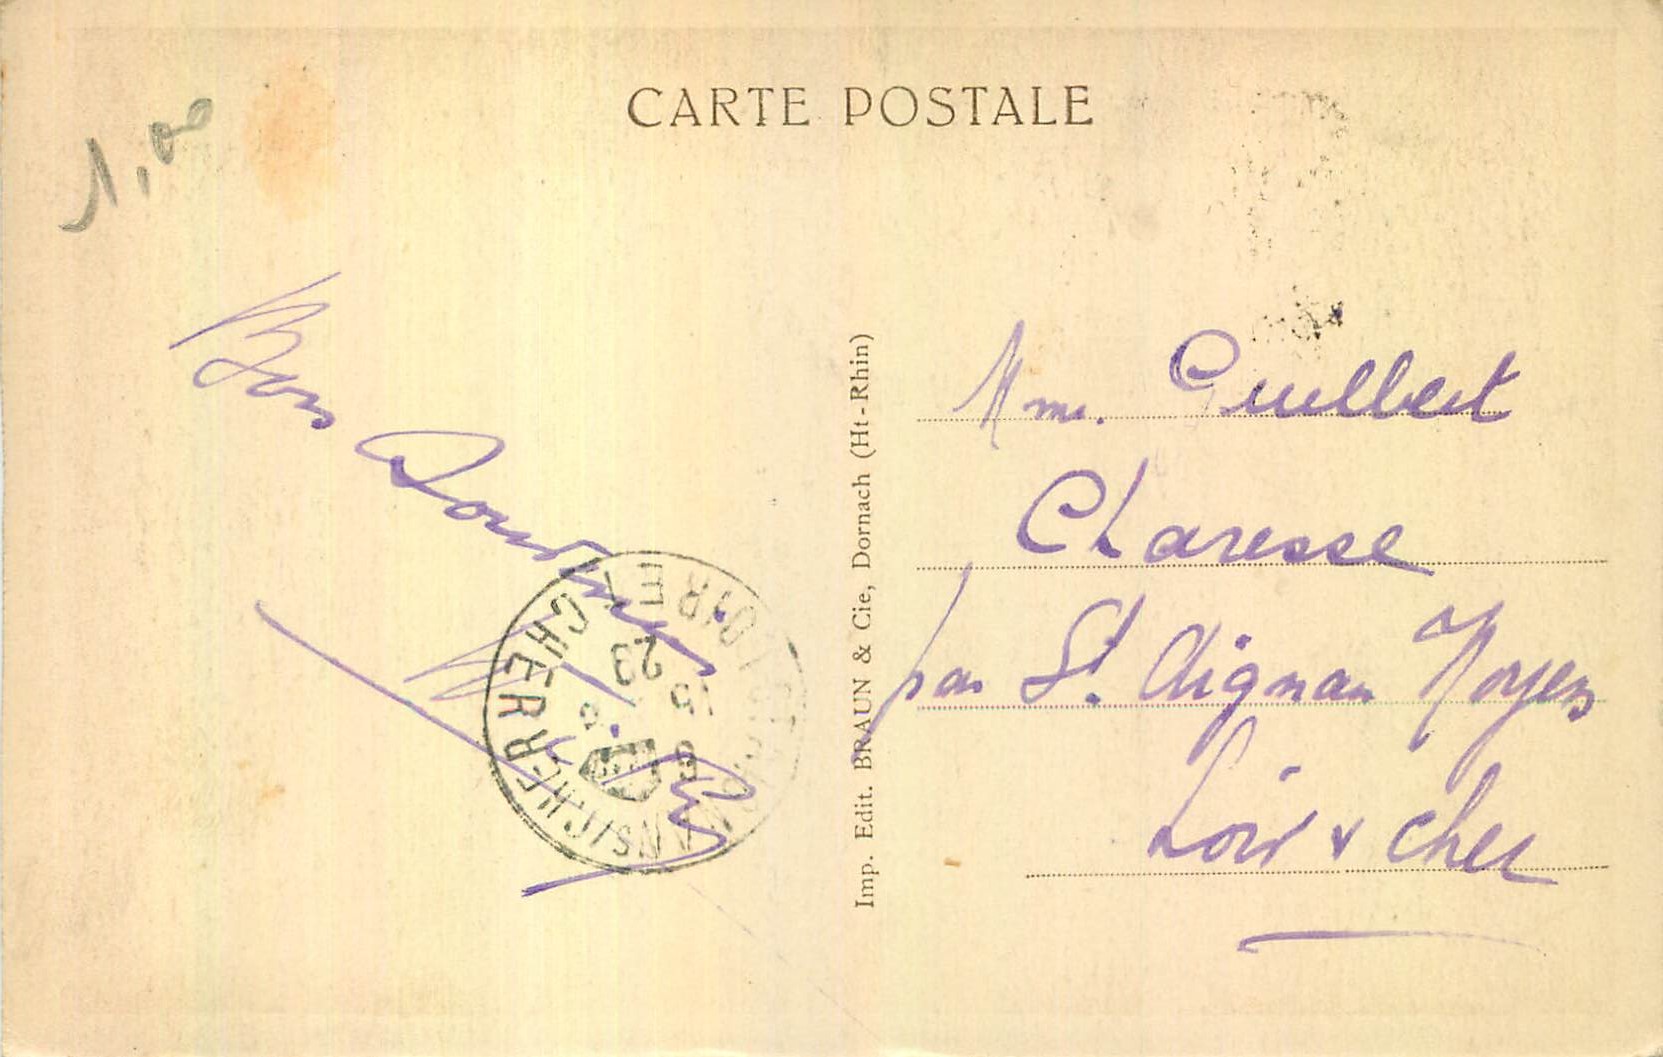 CARTE POSTALE
1,00
Bon Souvenir
Imp. Edit. BRAUN & Cie, Dornach (Ht-Rhin)
Mme. Guilbert
Charesse
par St. Aignan Noyers
Loir & Cher
LOIR ET CHER
23